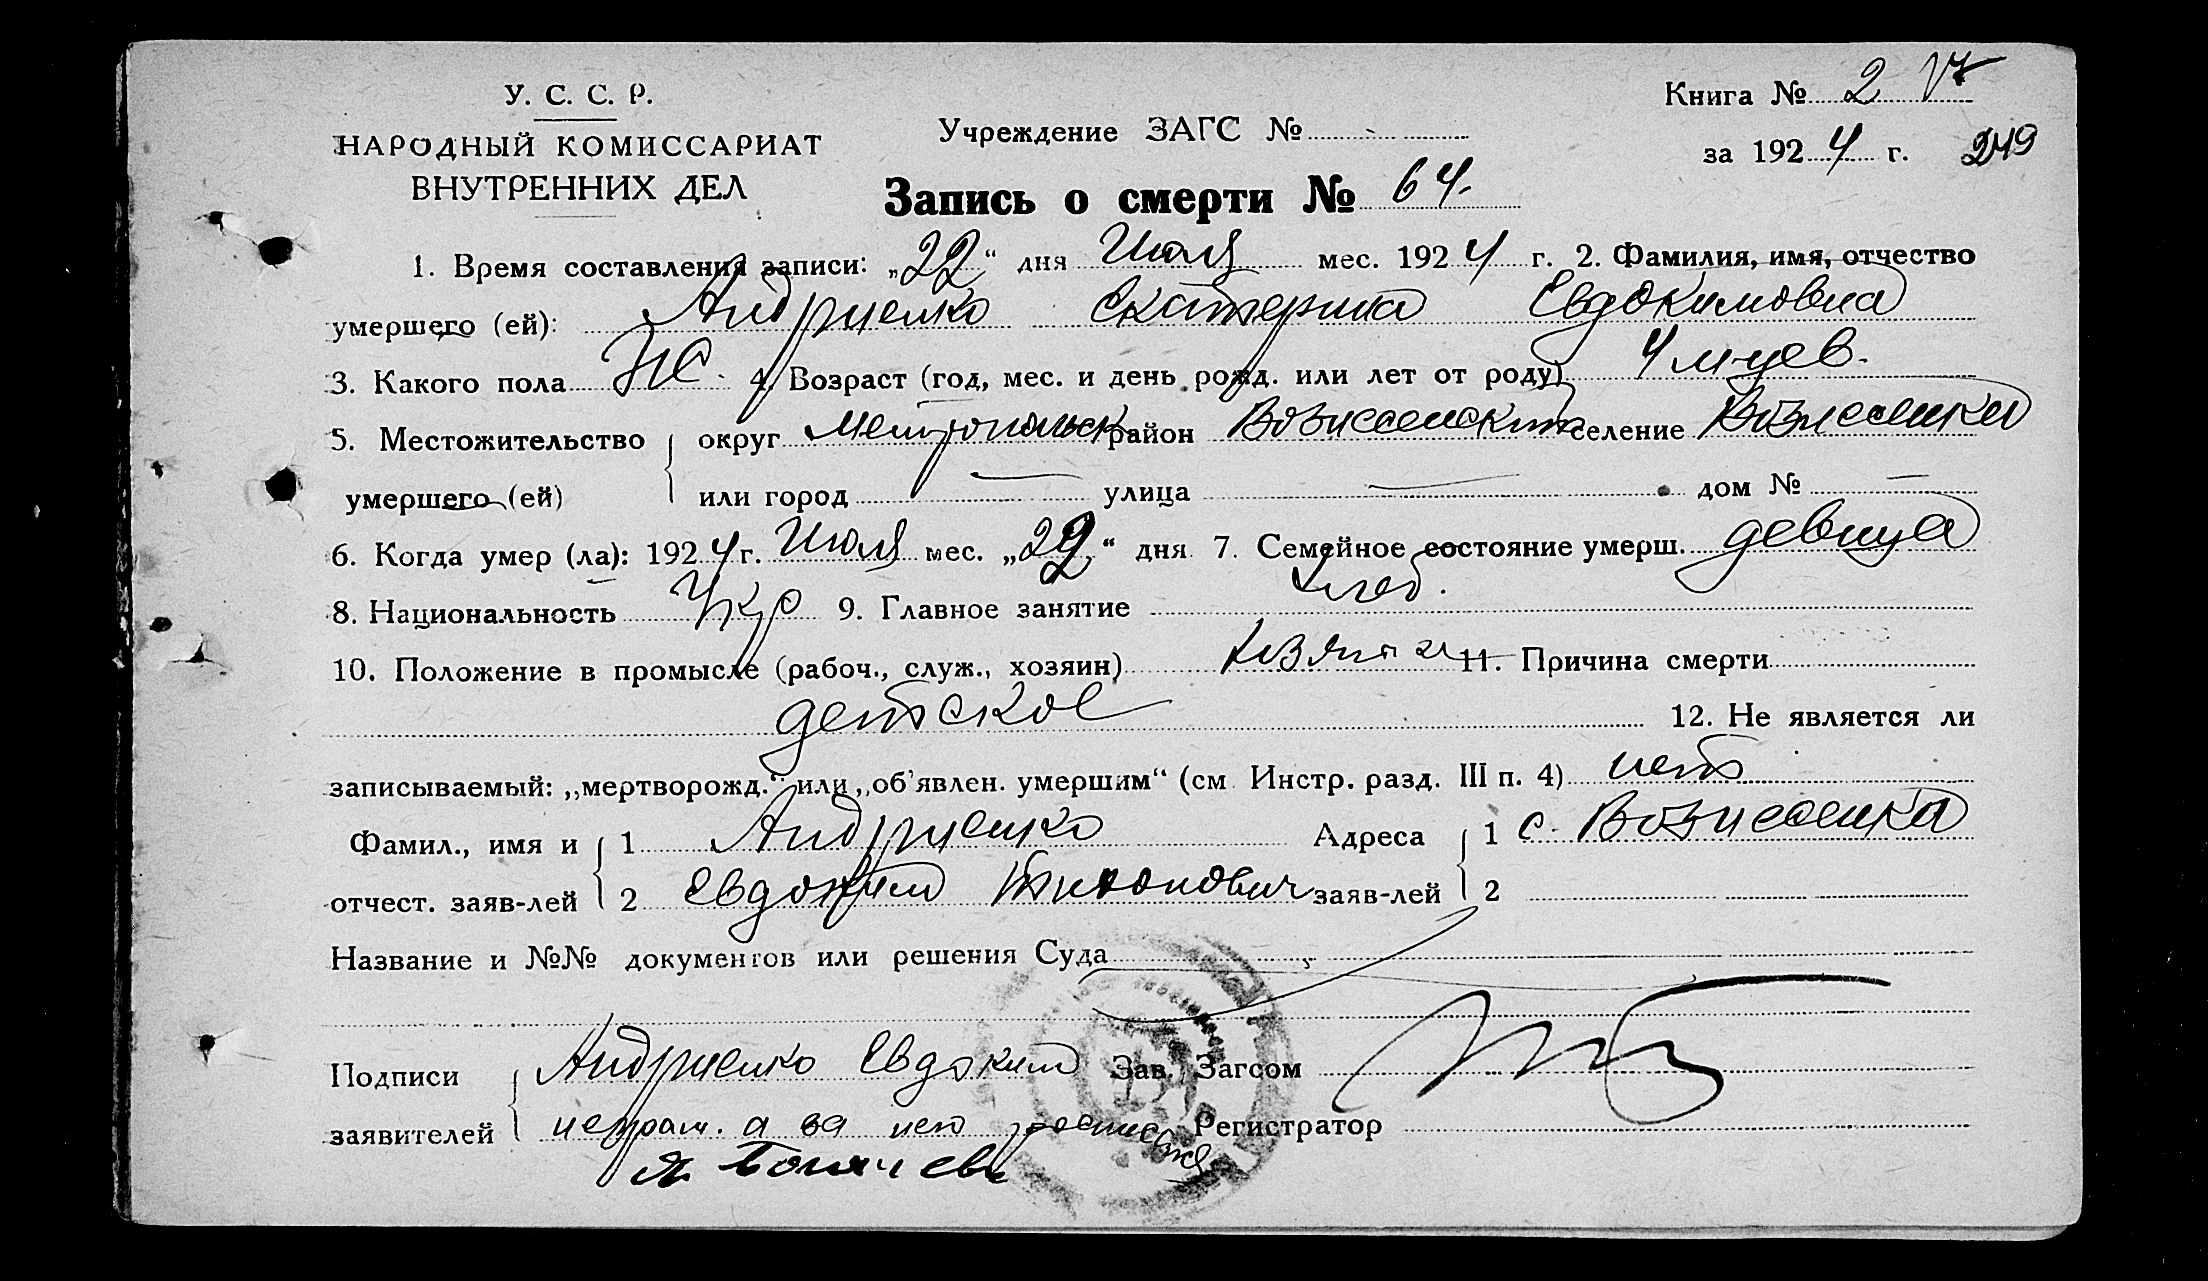 У. С. С. Р.
НАРОДНЫЙ КОМИССАРИАТ
ВНУТРЕННИХ ДЕЛ
Учреждение ЗАГС №
Книга № 2
за 1924 г. 249
Запись о смерти № 64.
1. Время составления записи: „22“ дня Июля мес. 1924 г. 2. Фамилия, имя, отчество
умершего (ей): Андриенко Екатерина Евдокимовна
3. Какого пола Ж. 4. Возраст (год, мес. и день рожд. или лет от роду) 4 м-цев.
5. Местожительство округ Мелитопольск район Вознесенский селение Вознесенка
умершего (ей) или город — улица — дом № —
6. Когда умер (ла): 1924 г. Июля мес. „22“ дня 7. Семейное состояние умерш. девица
8. Национальность Укр 9. Главное занятие хлеб.
10. Положение в промысле (рабоч., служ., хозяин) 11. Причина смерти
детское 12. Не является ли
записываемый: „мертворожд.“ или „об'явлен. умершим“ (см. Инстр. разд. III п. 4) нет
Фамил., имя и 1 Андриенко Адреса 1 с. Вознесенка
отчест. заяв-лей 2 Евдоким Тихонович заяв-лей 2
Название и №№ документов или решения Суда
Подписи Андриенко Евдоким Зав. Загсом
заявителей неграм. а за него расписался Регистратор